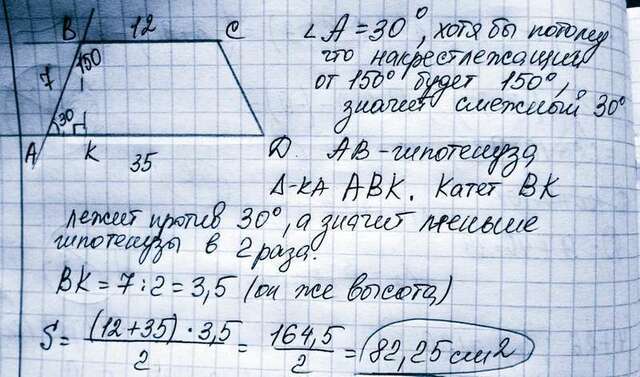 B 12 C
7 150
30
A K 35 D
∠A = 30°, хотя бы потому
что накрестлежащий
от 150° будет 150°,
значит смежный 30°
AB - гипотенуза
Δ-ка ABK. Катет BK
лежит против 30°, а значит меньше
гипотенузы в 2 раза.
BK = 7 : 2 = 3,5 (он же высота)
S = (12+35) · 3,5 / 2 = 164,5 / 2 = 82,25 см²